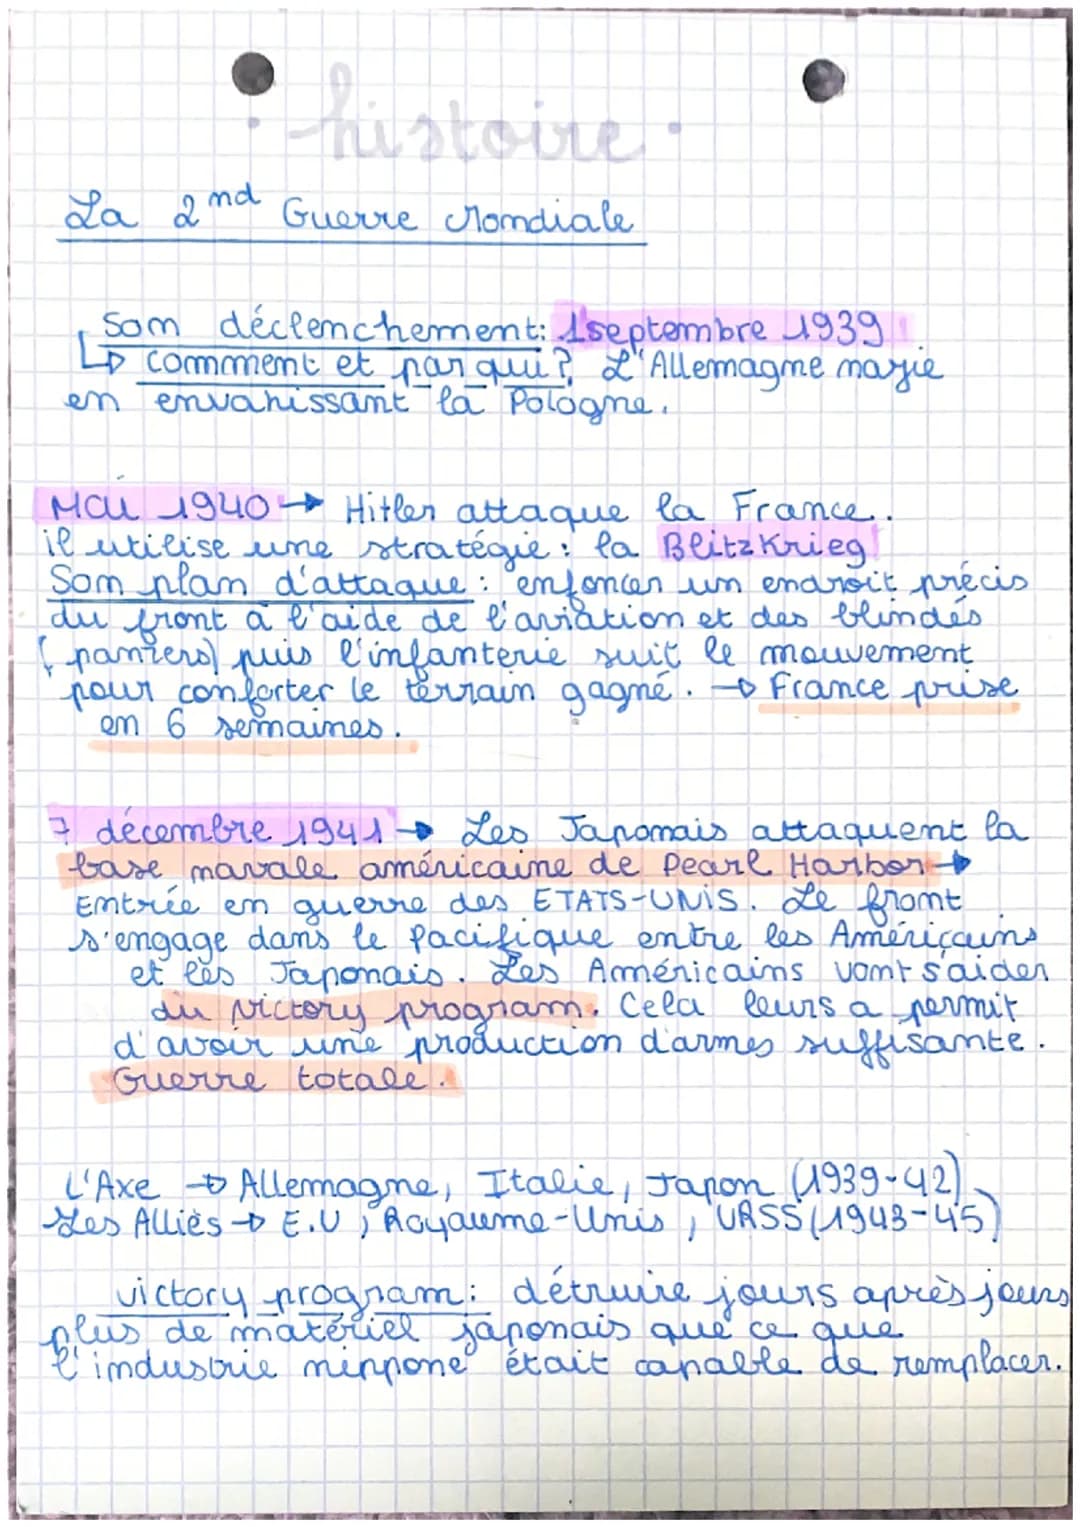 • histoire •
La 2nd Guerre Mondiale
Son déclenchement: 1 septembre 1939
↳ comment et par qui? L'Allemagne nazie
en envahissant la Pologne.
Mai 1940 → Hitler attaque la France.
il utilise une stratégie : la BlitzKrieg
Son plan d'attaque : enfoncer un endroit précis
du front à l'aide de l'aviation et des blindés
(panzers) puis l'infanterie suit le mouvement
pour conforter le terrain gagné. → France prise
en 6 semaines.
7 décembre 1941 → Les Japonais attaquent la
base navale américaine de Pearl Harbor →
Entrée en guerre des ETATS-UNIS. Le front
s'engage dans le Pacifique entre les Américains
et les Japonais. Les Américains vont s'aider
du victory program. Cela leurs a permit
d'avoir une production d'armes suffisante.
Guerre totale.
L'Axe → Allemagne, Italie, Japon (1939-42)
Les Alliés → E.U, Royaume-Unis, URSS (1943-45)
victory program: détruire jours après jours
plus de matériel japonais que ce que
l'industrie nippone était capable de remplacer.